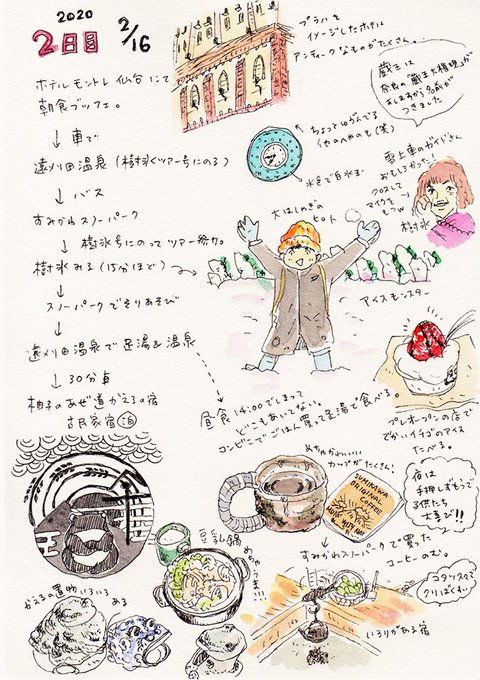 2020
2日目 2/16
プラハを
イメージしたホテル
アンティークなものがたくさん…
ホテルモントレ仙台にて
朝食ブッフェ。
↓ 車で
遠刈田温泉(樹氷ツアー号にのる)
↓ バス
すみかわスノーパーク
↓ 樹氷号にのってツアー参加。
樹氷みる(15分ほど)
↓
スノーパークでそりあそび
↓
遠刈田温泉で足湯&温泉
↓ 30分車
柚子のあぜ道かえるの宿
古民家宿 泊
蔵王は
奈良の蔵王大権現が
おしますから名前が
つきました
ちょっとゆがんでる
他のへやのも(笑)
水色で自氷玉
雪上車のガイドさん
おもしろかった!
クロスして
マイクを
もつw
樹氷
大はしゃぎの
ヒロト
アイスモンスター
昼食14:00でしまって
どこもあいてない。
コンビニでごはん買って足湯で食べる。
プレオープンの店で
でかイチゴのアイス
たべる。
めちゃかわいい
カップがたくさん!
SUMIKAWA
ORIGINAL
COFFEE
すみかわスノーパークで買った
コーヒーのむ。
夜は
手押しずもうで
子供たち
大喜び!!
豆乳鍋
かえるの置物いろいろ
ある
いろりがある宿